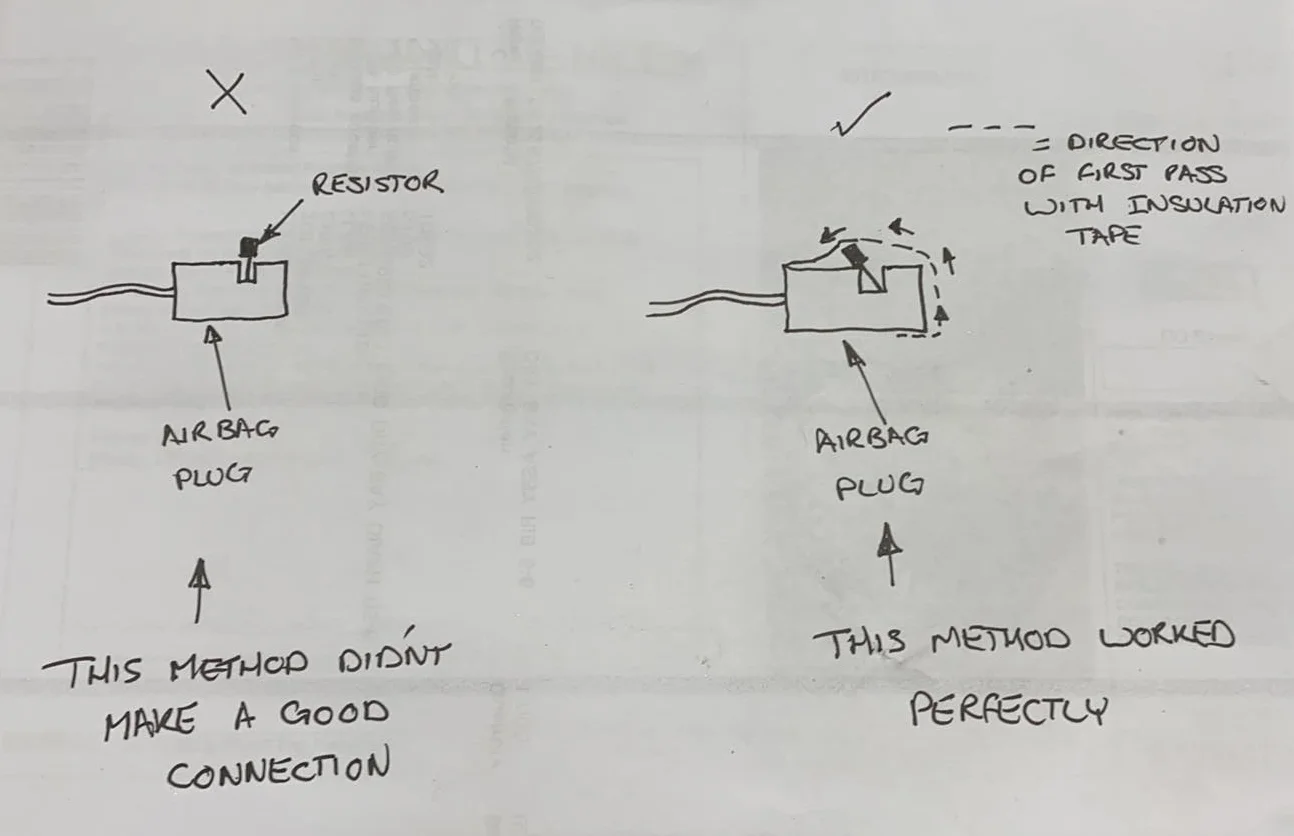 RESISTOR
AIRBAG
PLUG
THIS METHOD DIDN'T
MAKE A GOOD
CONNECTION
= DIRECTION
OF FIRST PASS
WITH INSULATION
TAPE
AIRBAG
PLUG
THIS METHOD WORKED
PERFECTLY